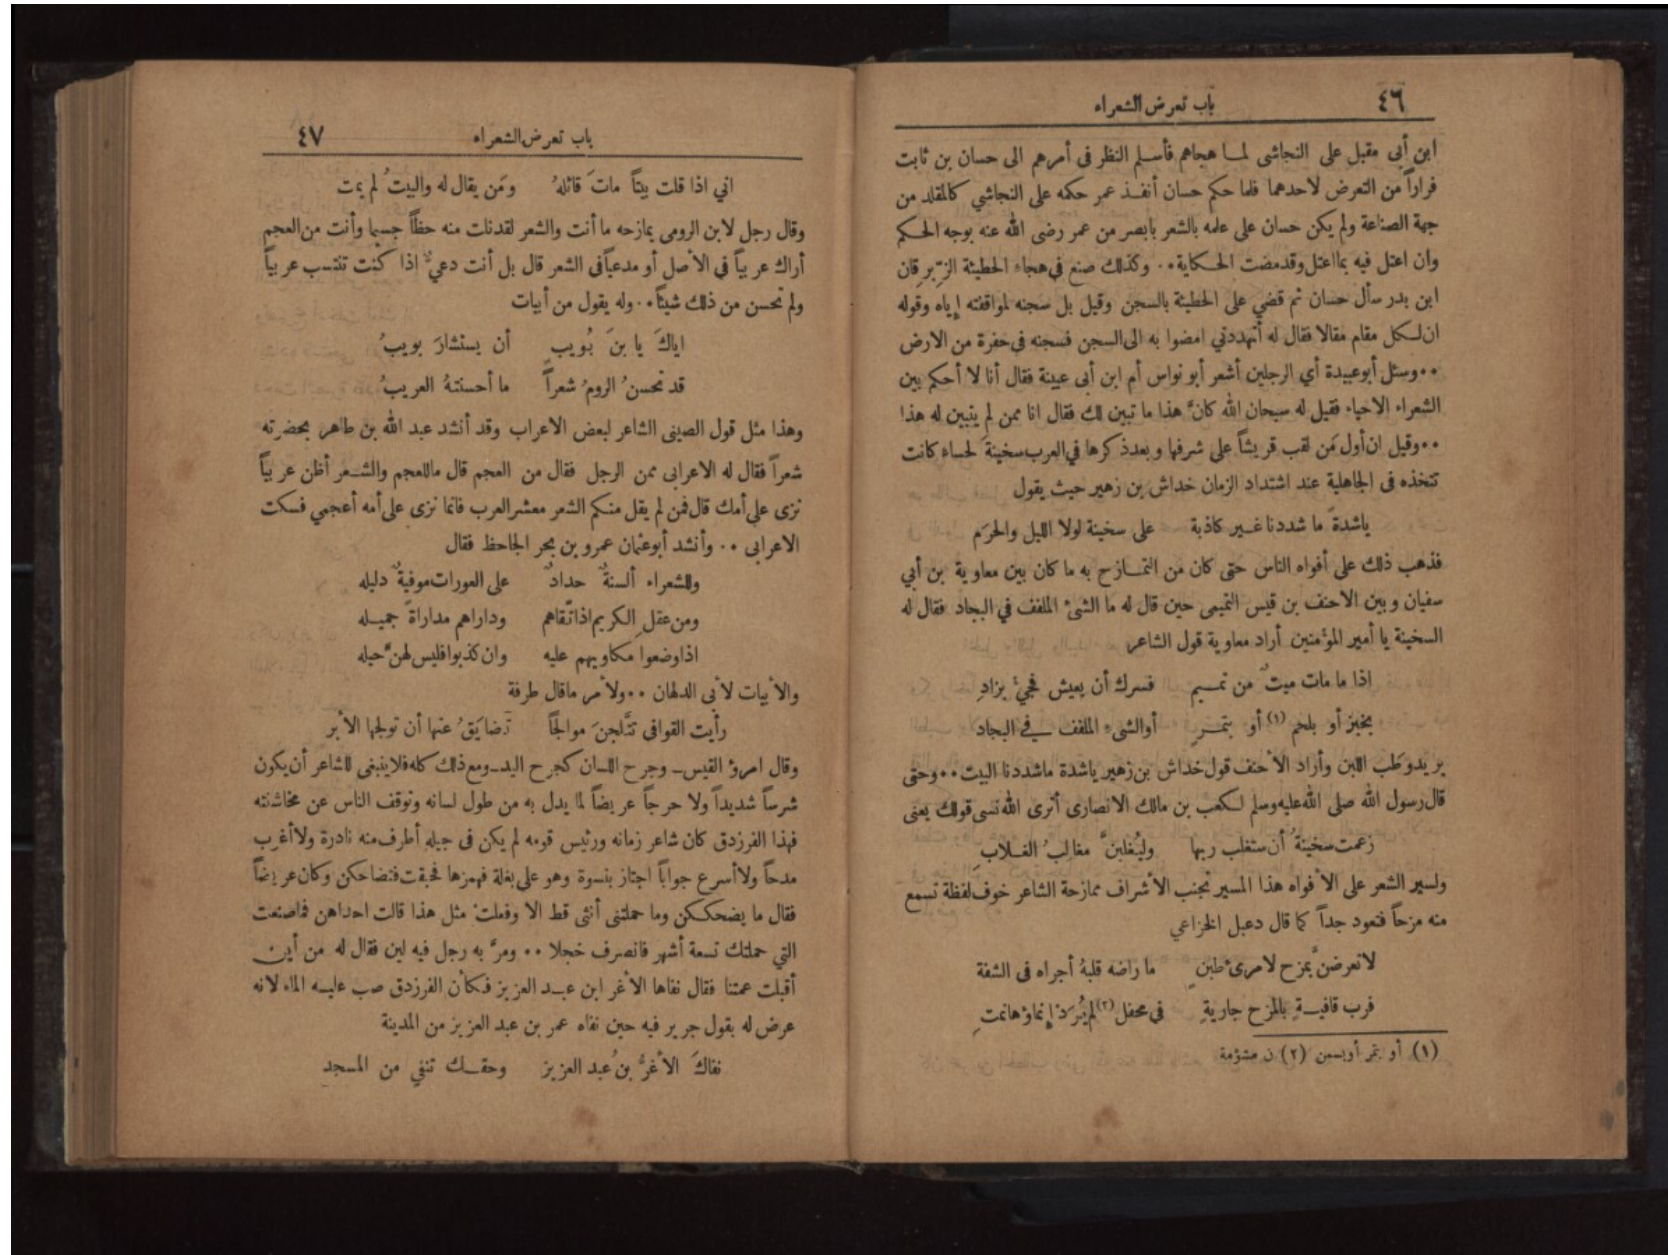 ٤٦
باب تعرض الشعراء
ابن أبى مقبل على النجاشى لما هجاهم فأسلم النظر فى أمرهم الى حسان بن ثابت
فراراً من التعرض لاحدهما فلما حكم حسان أنفذ عمر حكمه على النجاشي كالمقلد من
جهة الصناعة ولم يكن حسان على علمه بالشعر بابصر من عمر رضى الله عنه بوجه الحكم
وان اعتل فيه بما اعتل وقد مضت الحكاية ٠٠ وكذلك صنع في هجاء الحطيئة الزّبرقان
ابن بدر سأل حسان ثم قضي على الحطيئة بالسجن وقيل بل سجنه لمواقفته إياه وقوله
ان لكل مقام مقالا فقال له أتهددني امضوا به الى السجن فسجنه فى حفرة من الارض
٠٠ وسئل أبو عبيدة أي الرجلين أشعر أبو نواس أم ابن أبى عيينة فقال أنا لا أحكم بين
الشعراء الاحياء فقيل له سبحان الله كانَّ هذا ما تبين لك فقال انا ممن لم يتبين له هذا
٠٠ وقيل ان أول مَن لقب قريشاً على شرفها وبعد ذكرها في العرب سخينةَ لحساء كانت
تتخذه فى الجاهلية عند اشتداد الزمان خداش بن زهير حيث يقول
ياشدةً ما شددنا غير كاذبة على سخينة لولا الليل والحرَم
فذهب ذلك على أفواه الناس حتى كان من التمازح به ما كان بين معاوية بن أبي
سفيان وبين الاحنف بن قيس التميمى حين قال له ما الشئ الملفف في البجاد فقال له
السخينة يا أمير المؤمنين أراد معاوية قول الشاعر
اذا ما مات ميتٌ من تميم فسرك أن يعيش فجئ بزادِ
بخبز أو بلحم (١) أو بتمرٍ أو الشىء الملفف في البجاد
يريد وطب اللبن وأراد الأحنف قول خداش بن زهير ياشدة ما شددنا البيت ٠٠ وحتى
قال رسول الله صلى الله عليه وسلم لكعب بن مالك الانصارى أترى الله نسى قولك يعنى
زعمت سخينةُ أن ستغلب ربها وليُغلبنَّ مغالبُ الغلابِ
ولسير الشعر على الأفواه هذا المسير تجنب الأشراف ممازحة الشاعر خوف لفظة تسمع
منه مزحاً فتعود جداً كما قال دعبل الخزاعي
لا تعرضنَّ بمزح لامرىءٍ طبنٍ ما راضه قلبهُ أجراه فى الشفة
فرب قافيةٍ بالمزح جاريةٍ في محفل (٢) لم يُرَدْ إنماؤها نمتِ
(١) أو بتمر أو بسمن (٢) ن مشؤمة
باب تعرض الشعراء
٤٧
اني اذا قلت بيتاً ماتَ قائلهُ ومَن يقال له والبيتُ لم يمت
وقال رجل لابن الرومى يمازحه ما أنت والشعر لقد نلت منه حظّاً جسيما وأنت من العجم
أراك عربياً في الأصل أو مدعياً فى الشعر قال بل أنت دعيٌّ اذا كنت تنتسب عربياً
ولم تحسن من ذلك شيئاً ٠٠ وله يقول من أبيات
اياكَ يا بنَ بُويب أن يستشارَ بويبُ
قد تحسنُ الرومُ شعراً ما أحسنتهُ العريبُ
وهذا مثل قول الصينى الشاعر لبعض الاعراب وقد أنشد عبد الله بن طاهر بحضرته
شعراً فقال له الاعرابى ممن الرجل فقال من العجم قال ما للعجم والشعر أظن عربياً
نزى على أمك قال فمن لم يقل منكم الشعر معشر العرب فانما نزى على أمه أعجمي فسكت
الاعرابى ٠٠ وأنشد أبو عثمان عمرو بن بحر الجاحظ فقال
وللشعراء ألسنةٌ حدادٌ على العورات موفيةٌ دليله
ومن عقل الكريم اذا اتّقاهم وداراهم مداراةً جميله
اذا وضعوا مكاويهم عليه وان كذبوا فليس لهنَّ حيله
والأبيات لأبى الدلهان ٠٠ ولأمر ما قال طرفة
رأيت القوافى تتَّلجنَ موالجاً تضايَقُ عنها أن تولجها الأبر
وقال امرؤ القيس ــ وجرح اللسان كجرح اليد ــ ومع ذلك كله فلا ينبغى للشاعر أن يكون
شرساً شديداً ولا حرجاً عريضاً لما يدل به من طول لسانه وتوقف الناس عن مخاشنته
فهذا الفرزدق كان شاعر زمانه ورئيس قومه لم يكن فى جيله أطرف منه نادرة ولا أغرب
مدحاً ولا أسرع جواباً اجتاز بنسوة وهو على بغلة فهمزها فحبقت فتضاحكن وكان عريضاً
فقال ما يضحككن وما حملتنى أنثى قط الا وفعلت مثل هذا قالت احداهن فما صنعت
التي حملتك تسعة أشهر فانصرف خجلا ٠٠ ومرَّ به رجل فيه لين فقال له من أين
أقبلت عمتنا فقال نفاها الأغر ابن عبد العزيز فكأن الفرزدق صب عليه الماء لانه
عرض له بقول جرير فيه حين نفاه عمر بن عبد العزيز من المدينة
نفاكَ الأغرُّ بنُ عبد العزيز وحقك تنفي من المسجد